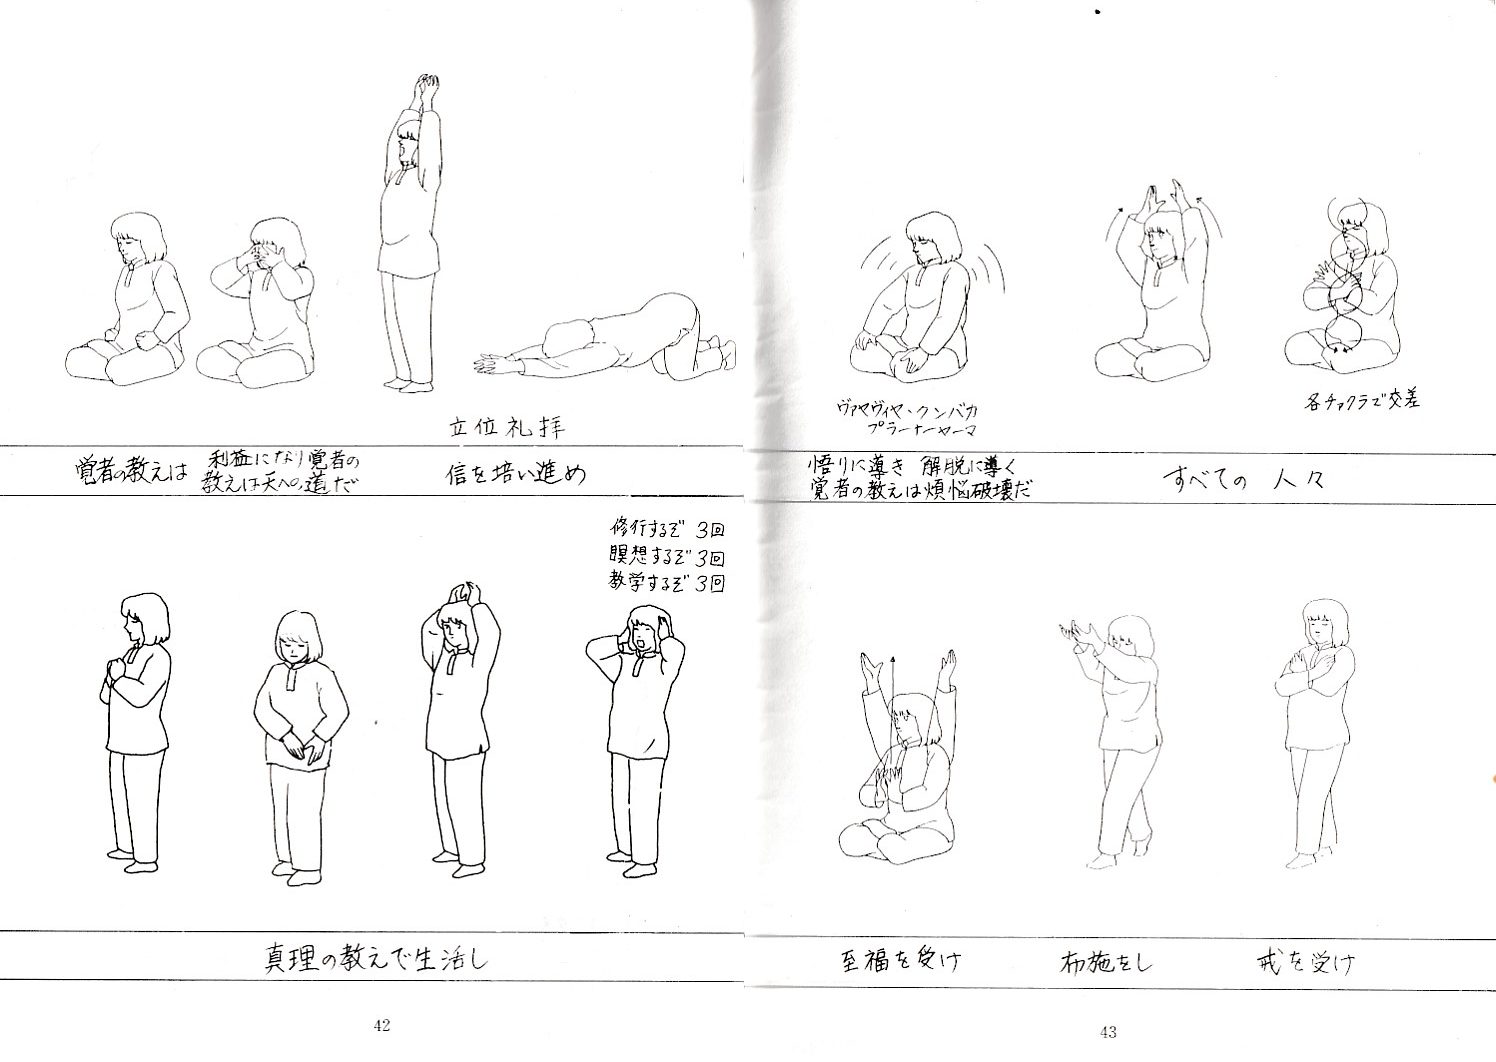 立位礼拝
覚者の教えは
利益になり覚者の
教えは天への道だ
信を培い進め
修行するぞ 3回
瞑想するぞ 3回
教学するぞ 3回
真理の教えで生活し
42
ヴァヤヴィヤ・クンバカ
プラーナーヤーマ
各チァクラで交差
悟りに導き 解脱に導く
覚者の教えは煩悩破壊だ
すべての 人々
至福を受け
布施をし
戒を受け
43